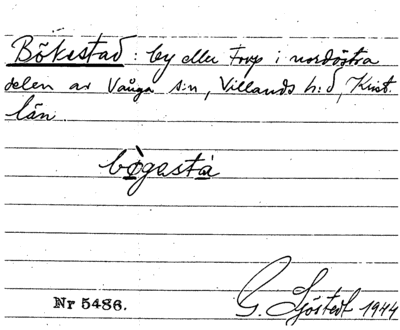 Bökestad : by eller torp i nordöstra
delen av Vånga s:n, Villands h:d, Krist.
län.
bø̀gastà
Nr 5486.
G. Sjöstedt 1944